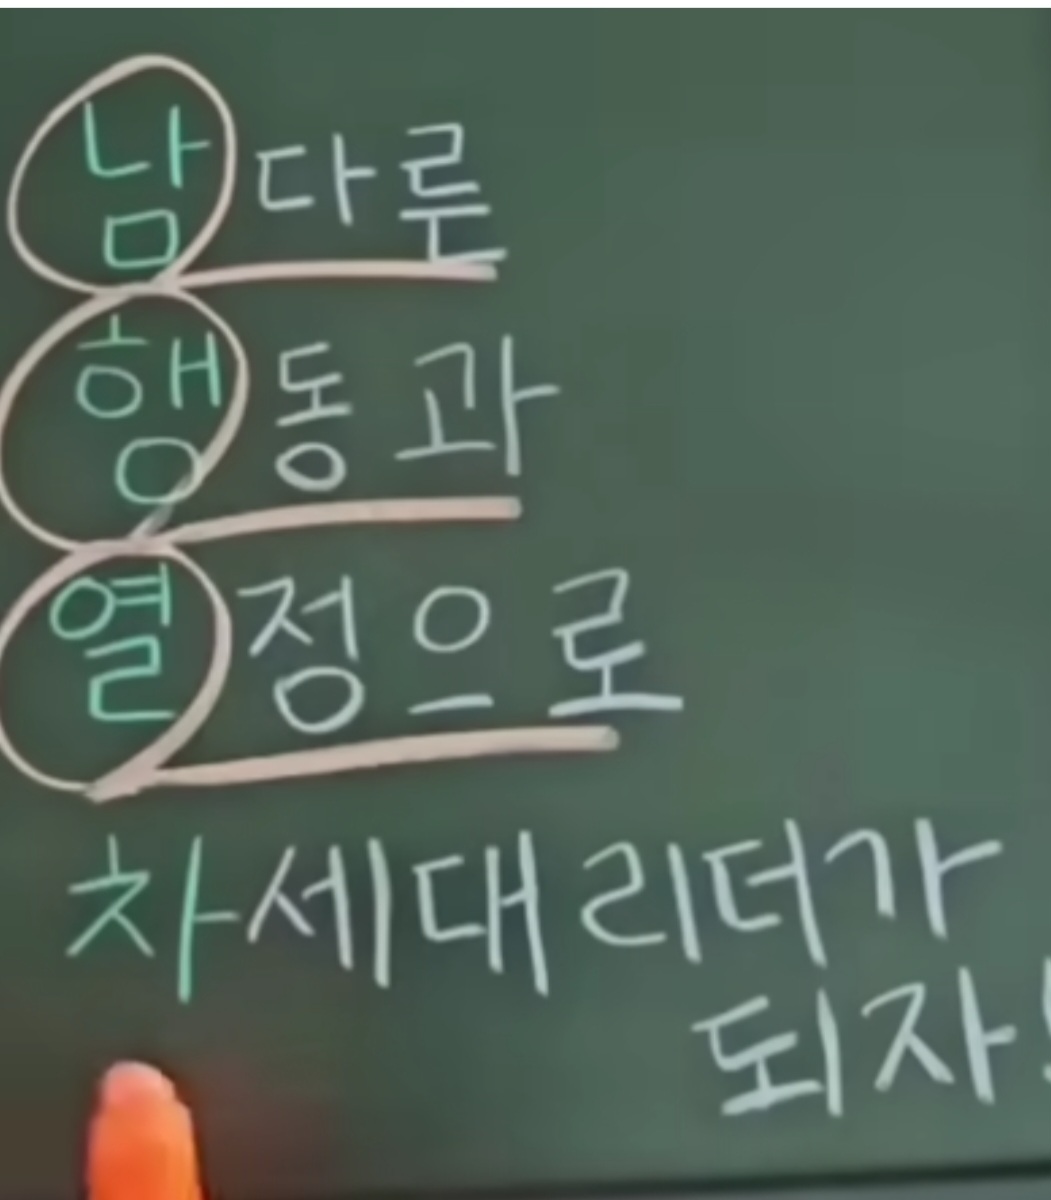 남다른
행동과
열정으로
차세대리더가
되자!